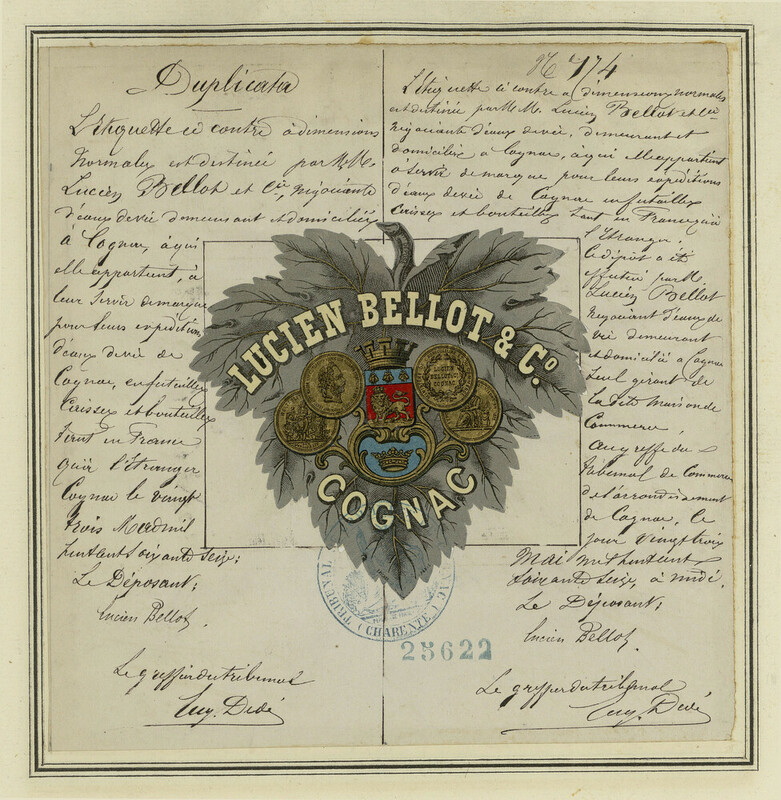 Duplicata
L'Etiquette ci contre à dimensions
Normales est destinée par M.M.
Lucien Bellot et Cie, Négociants
d'eaux de vie demeurant et domiciliés
à Cognac, à qui
elle appartient, à
leur servir de marque
pour leurs expéditions
d'eaux de vie de
Cognac, en futailles
Caisses et bouteilles
tant en France
qu'à l'étranger
Cognac le vingt
trois Mai mil
huit cent soixante seize;
Le Déposant;
Lucien Bellot.
Le greffier du tribunal
Eug. Dedé
No 174
L'étiquette ci contre à dimensions normales
est destinée par M.M. Lucien Bellot et Cie
Négociants d'eaux de vie, demeurant et
domiciliés à Cognac, à qui elle appartient
à servir de marque pour leurs expéditions
d'eaux de vie de Cognac en futailles
Caisses et bouteilles tant en France qu'à
l'étranger.
Ce dépôt a été
effectué par M.
Lucien Bellot
Négociant d'eaux de
vie demeurant
et domicilié à Cognac
seul gérant de
la dite maison de
Commerce,
au greffe du
tribunal de Commerce
de l'arrondissement
de Cognac, le
jour vingt trois
Mai mil huit cent
soixante seize, à midi.
Le Déposant;
Lucien Bellot.
Le greffier du tribunal
Eug. Dedé
LUCIEN BELLOT & Co.
COGNAC
CHARENTE
25622